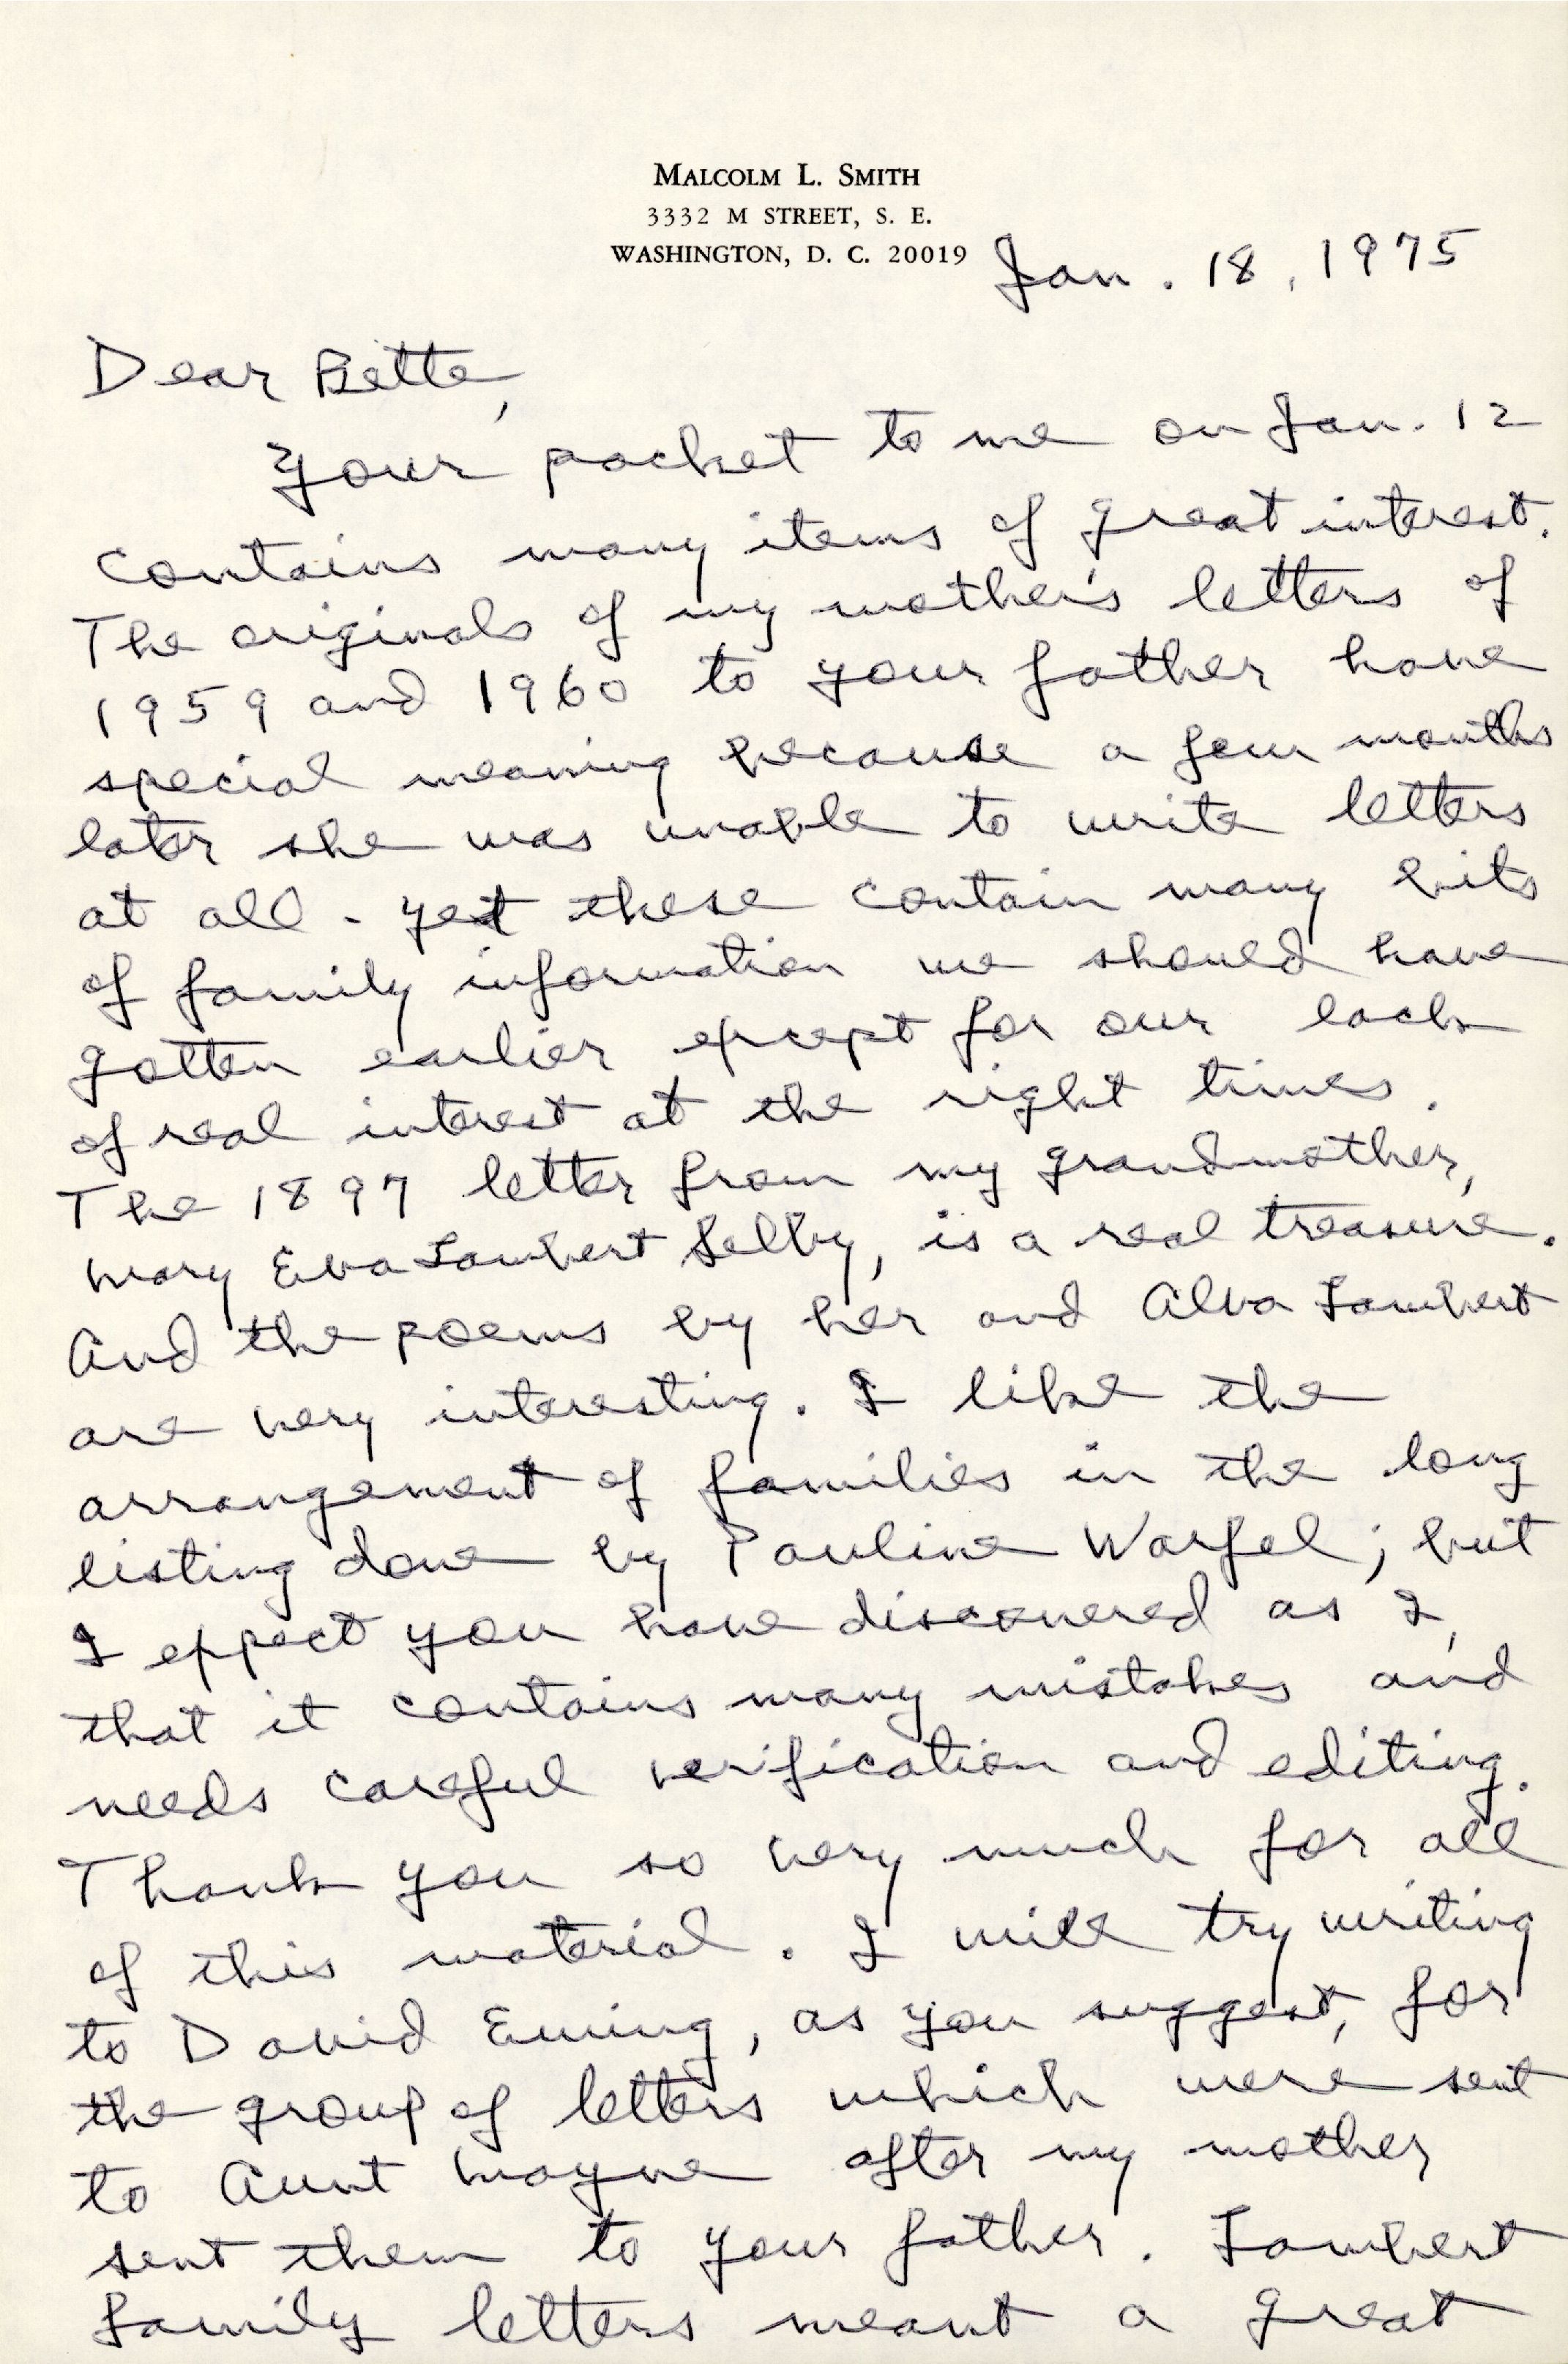 MALCOLM L. SMITH
3332 M STREET, S. E.
WASHINGTON, D. C. 20019
Jan. 18, 1975
Dear Bette,
Your packet to me on Jan. 12
contains many items of great interest.
The originals of my mother's letters of
1959 and 1960 to your father have
special meaning because a few months
later she was unable to write letters
at all - yet these contain many bits
of family information we should have
gotten earlier except for our lack
of real interest at the right times.
The 1897 letter from my grandmother,
Mary Eva Lambert Selby, is a real treasure.
And the poems by her and Alva Lambert
are very interesting. I like the
arrangement of families in the long
listing done by Pauline Warfel; but
I expect you have discovered as I,
that it contains many mistakes and
needs careful verification and editing.
Thank you so very much for all
of this material. I will try writing
to David Ewing, as you suggest, for
the group of letters which were sent
to Aunt Mayne after my mother
sent them to your father. Lambert
family letters meant a great